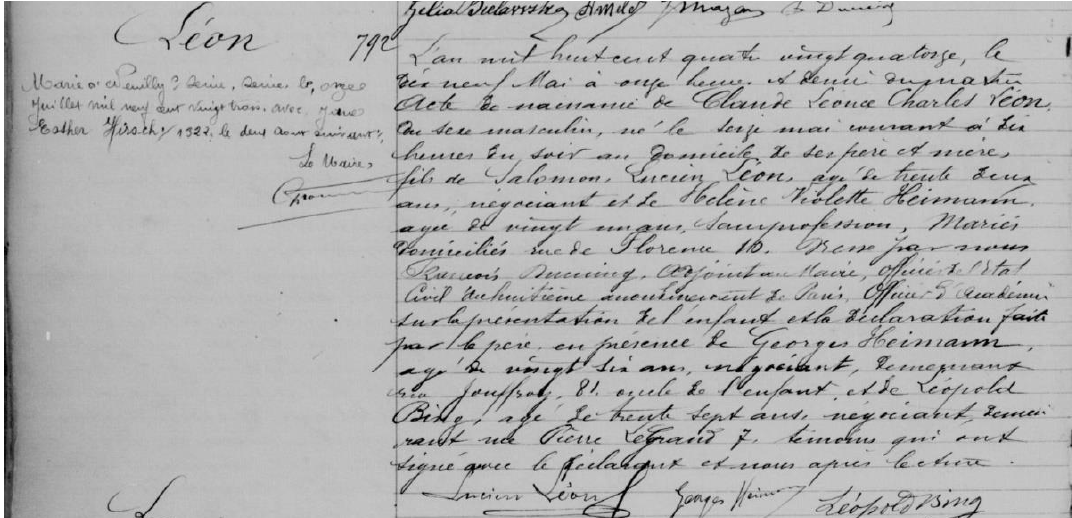 Léon
792
Marié à Neuilly s/ Seine, Seine le, onze
Juillet mil neuf cent vingt trois, avec, Jane
Esther Hirsch / 1922. le deux aout suivant
Le Maire,
L'an mil huit cent quatre vingt quatorze, le
dix neuf Mai à onze heures et demie du matin
Acte de naissance de Claude Léonce Charles Léon,
du sexe masculin, né le seize mai courant à dix
heures du soir au domicile de ses père et mère,
fils de Salomon, Lucien Léon, agé de trente deux
ans, négociant et de Hélène Violette Heimann,
agée de vingt un ans, sans profession, Mariés
domiciliés rue de Florence 10. Dressé par nous
François Adjoint au Maire, Officier de l'Etat
Civil du huitième arrondissement de Paris, Officier d'Académie
sur la présentation de l'enfant et la déclaration faite
par le père en présence de Georges Heimann,
agé de vingt six ans, négociant, demeurant
rue Jouffroy, 81 oncle de l'enfant et de Léopold
Bing, agé de trente sept ans, négociant, demeu
rant rue Pierre Legrand 7. témoins qui ont
signé avec le déclarant et nous après lecture.
Lucien Léon Georges Léopold Bing
L